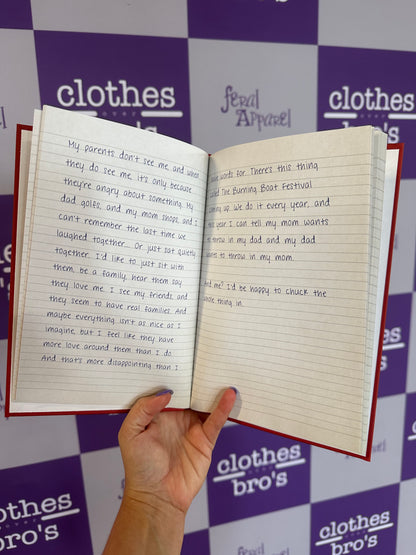 My parents don't see me, and when
they do see me, it's only because
they're angry about something. My
dad golfs, and my mom shops, and I
can't remember the last time we
laughed together... Or just sat quietly
together. I'd like to just sit with
them, be a family, hear them say
they love me. I see my friends, and
they seem to have real families. And
maybe everything isn't as nice as I
imagine, but I feel like they have
more love around them than I do.
And that's more disappointing than I
have words for. There's this thing
called The Burning Boat Festival
coming up. We do it every year, and
this year I can tell my mom wants
to throw in my dad and my dad
wants to throw in my mom.
And me? I'd be happy to chuck the
whole thing in.
clothes
over
bro's
Feral Apparel
clothes
over
bro's
clothes
over
bro's
clothes
over
bro's
clothes
over